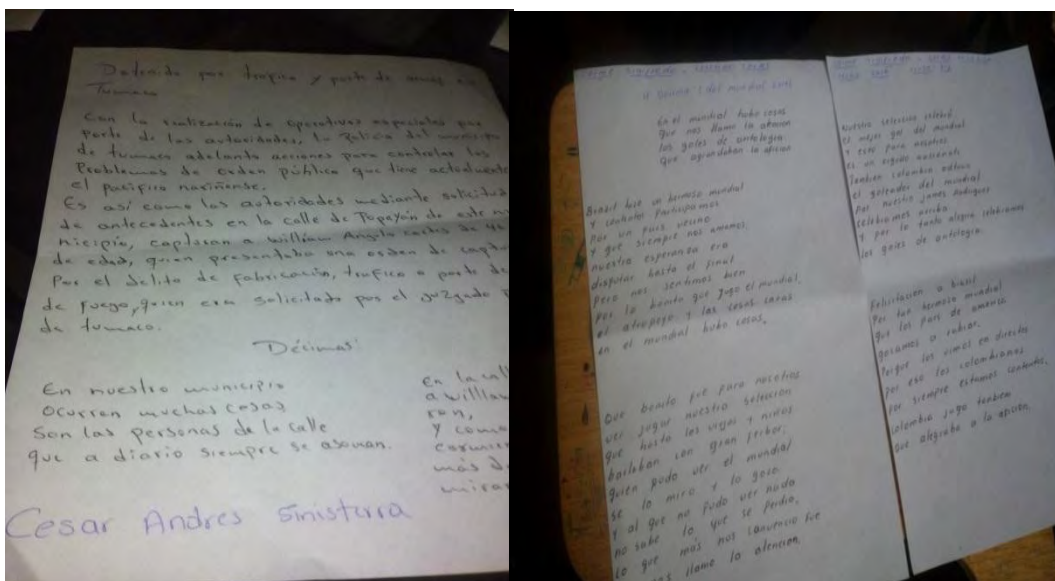 Detenido por trafico y porte de armas en
Tumaco
Con la realización de operativos especiales por
parte de las autoridades, la Policia del municipio
de tumaco adelanta acciones para controlar los
Problemas de orden público que tiene actualmente
el pacifico nariñense.
Es así como las autoridades mediante solicitud
de antecedentes en la calle de Popayán de este mu
nicipio, capturan a william Angulo cortes de
de edad, quien presentaba una orden de captu
Por el delito de fabricación, trafico o porte de
de fuego, quien era solicitado por el juzgado
de tumaco.
Décimas
En nuestro municipio
ocurren muchas cosas
Son las personas de la calle
que a diario siempre se asoman.
En la call
a willia
ron,
y como
comuni
más d
mira
Cesar Andres Sinisterra
en el mundial hubo cosas
que nos llamo la atencion
los goles de antologia
que agrandaban la aficion
Brasil hizo un hermoso mundial
Y contentos participamos
Por un pais vecino
Y que siempre nos amamos.
nuestra esperanza era
disputar hasta el final
Pero nos sentimos bien
por lo bonito que jugo el mundial.
el atropeyo y las cosas caras
en el mundial hubo cosas.
Que bonito fue para nosotros
ver jugar nuestra seleccion
que hasta los viejos y niños
bailaban con gran
quien pudo ver el mundial
se lo miro y lo goso
Y al que no pudo ver nada
no sabe lo que se perdio.
lo que más nos convencio fue
nos llamo la atencion.
Nuestra seleccion celebró
el mejor gol del mundial
Y este para nosotros
es un orgullo nacional
tambien colombia obtuvo
el goleador del mundial
Por nuestro james Rodriguez
celebramos
Y por lo tanto alegria celebramos
los goles de antologia.
Felicitacion a brasil
Por tan hermoso mundial
que los pais de america
gosamos a rabiar.
Porque los vimos en directos
Por eso los colombianos
Por siempre estamos contentos.
colombia jugo tambien
que alegraba a la aficion.